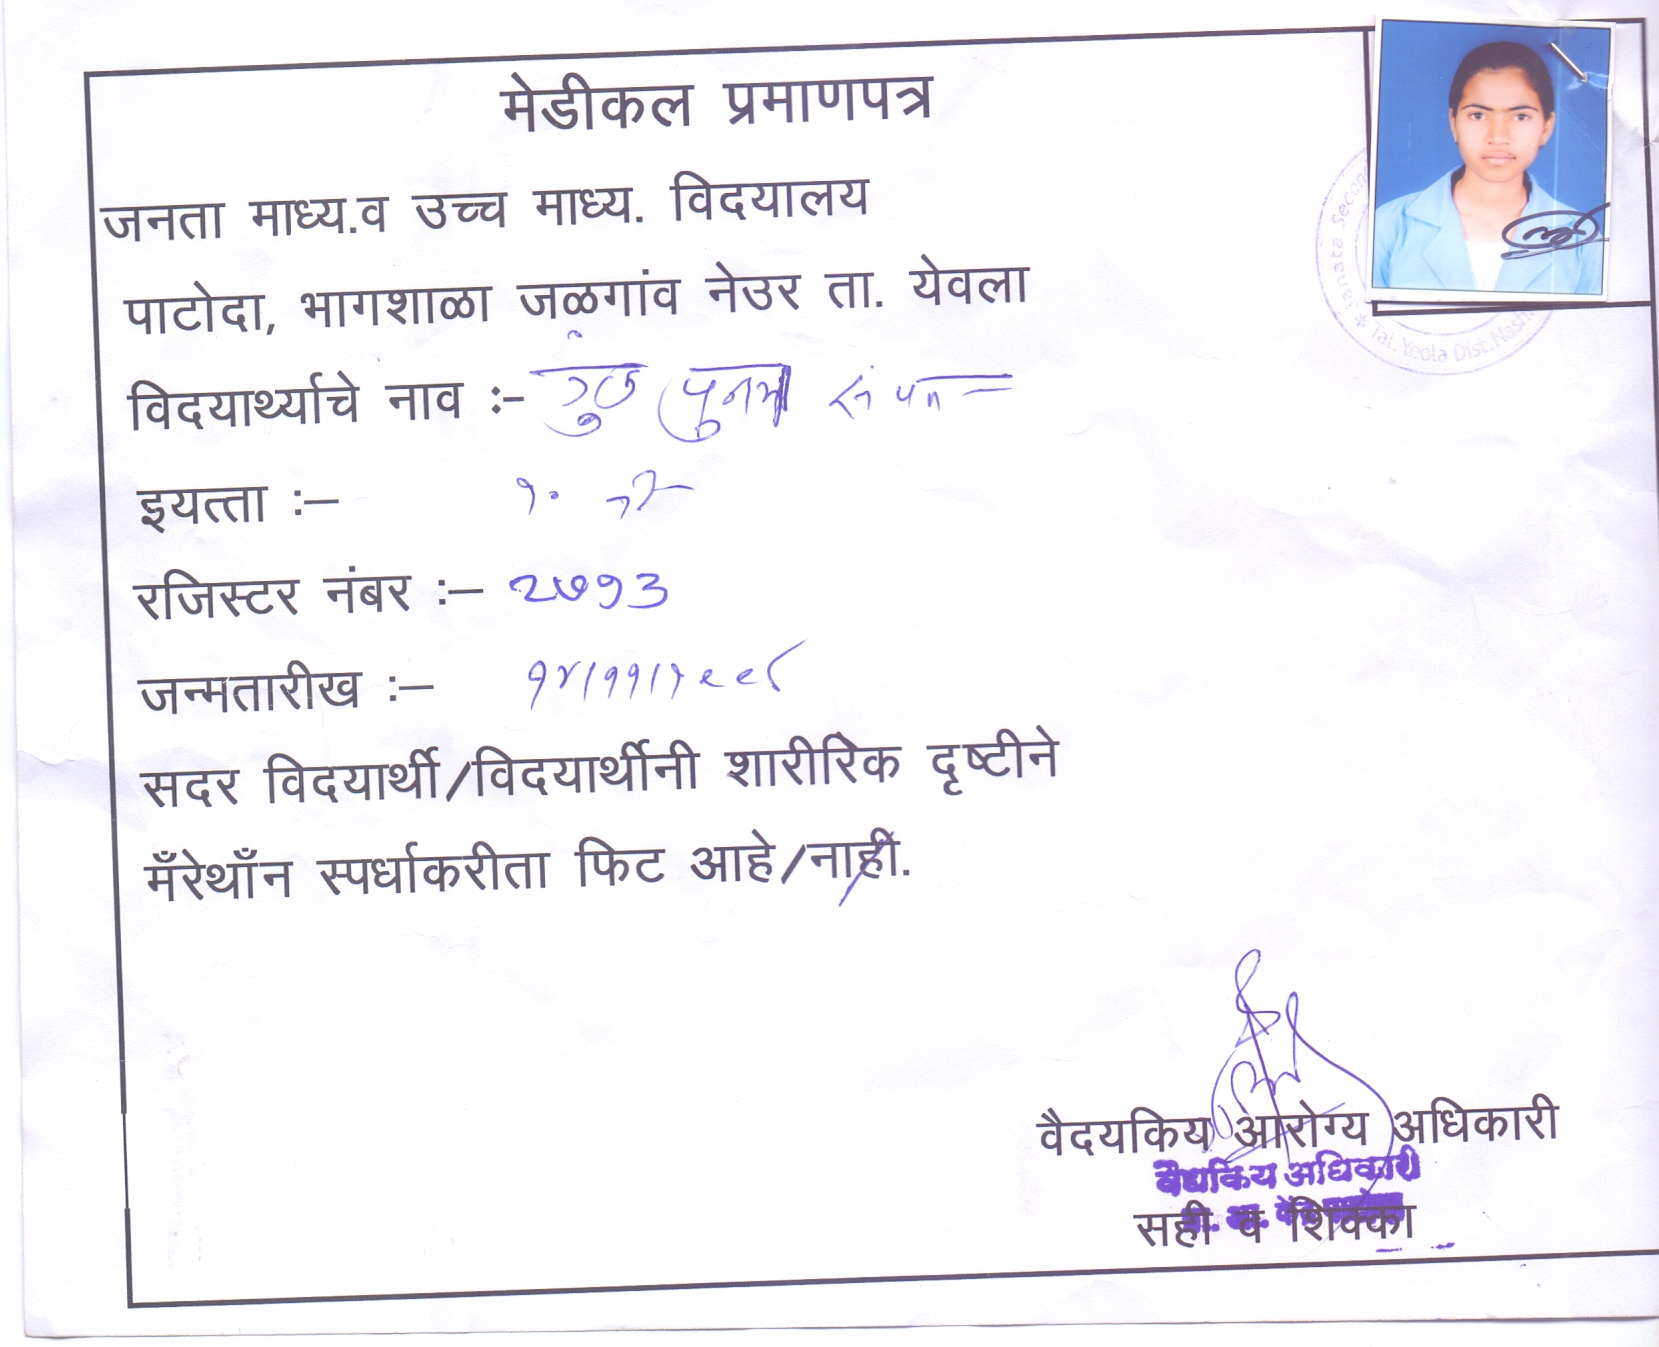 मेडीकल प्रमाणपत्र
जनता माध्य.व उच्च माध्य. विदयालय
पाटोदा, भागशाळा जळगांव नेउर ता. येवला
विदयार्थ्याचे नाव :- पुनम संपत
इयत्ता :- १० वी
रजिस्टर नंबर :- २७१३
जन्मतारीख :- १४/११/१९९८
सदर विदयार्थी/विदयार्थीनी शारीरिक दृष्टीने
मँरेथाँन स्पर्धाकरीता फिट आहे/नाही.
वैदयकिय आरोग्य अधिकारी
वैद्यकिय अधिकारी
सही व शिक्का
Janata Secon
Tal. Yeola Dist. Nashi